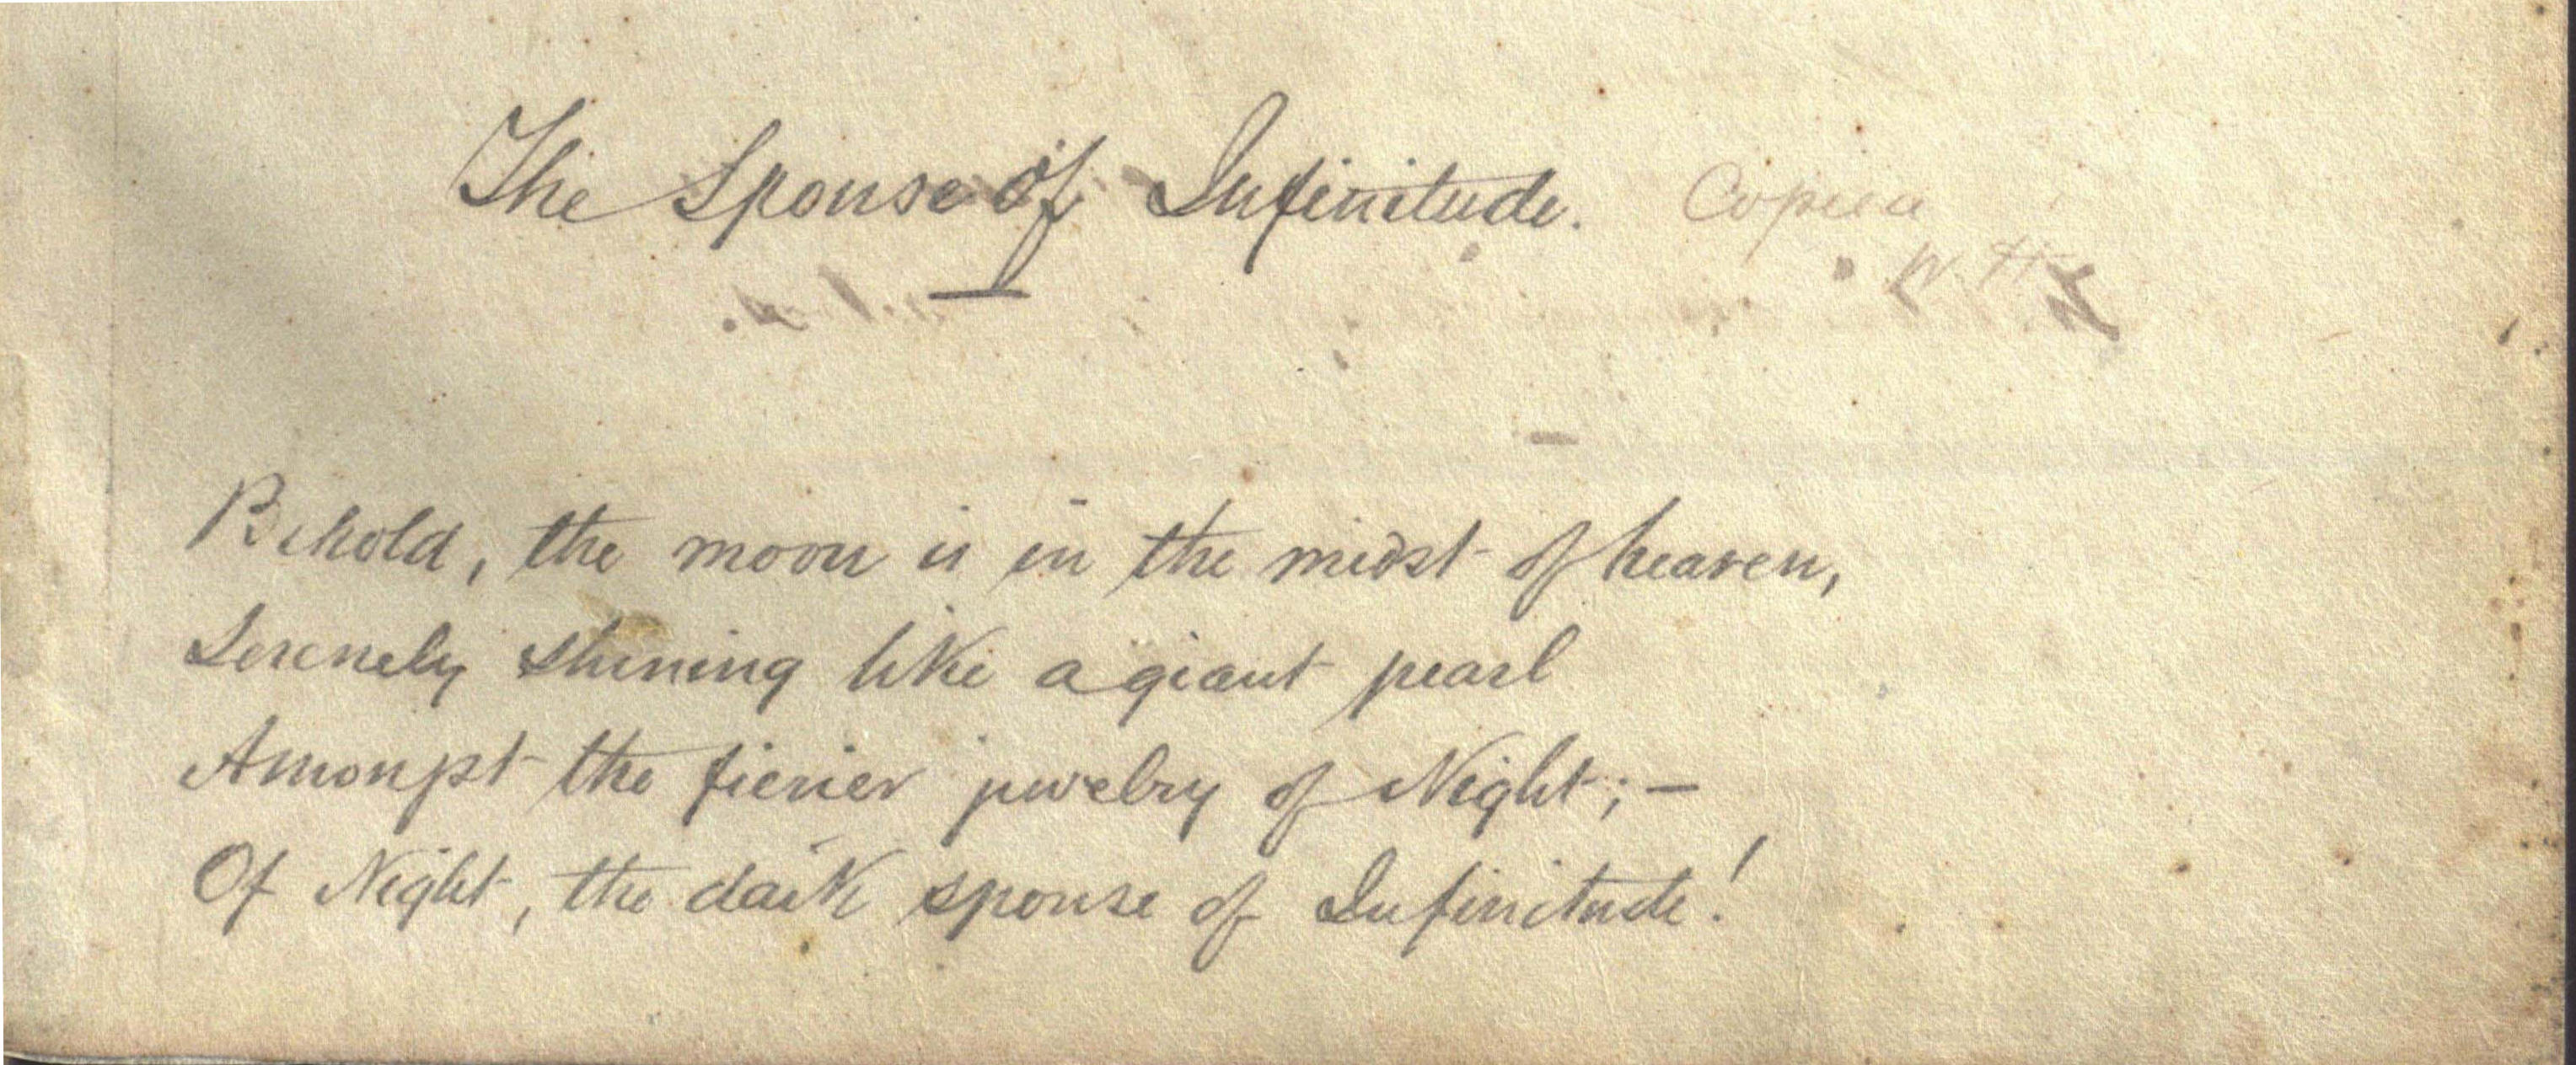 The Spouse of Infinitude. Copied
W. H.
Behold, the moon is in the midst of heaven,
Serenely shining like a giant pearl
Amongst the fierier jewelry of Night; —
Of Night, the dark spouse of Infinitude!